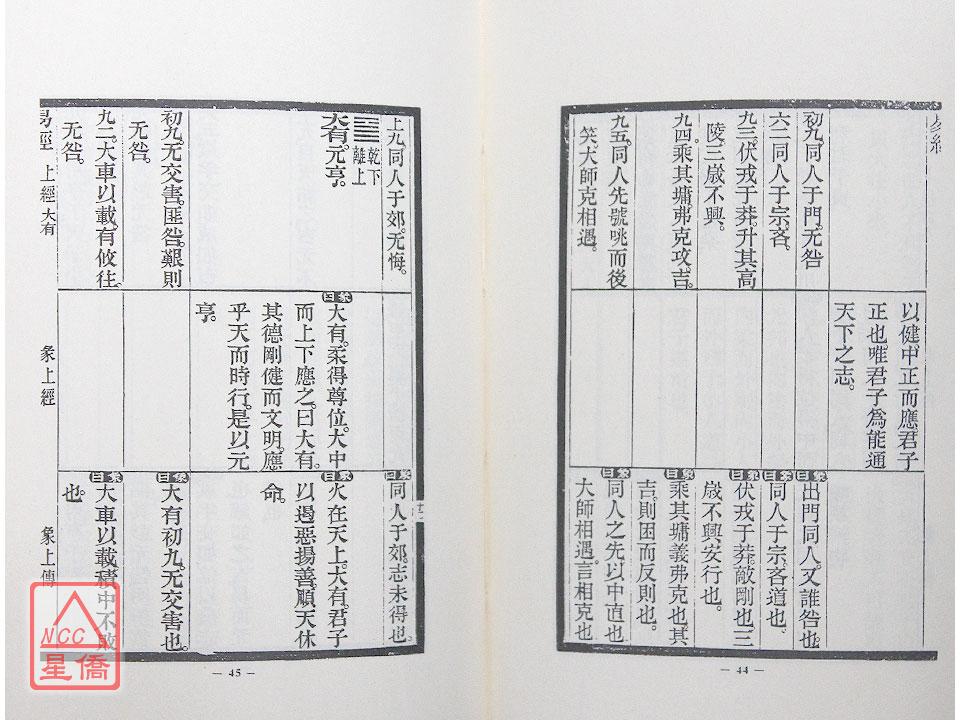 易經
初九。同人于門。无咎
六二。同人于宗。吝。
九三。伏戎于莽。升其高
陵。三歲不興。
九四。乘其墉。弗克攻。吉。
九五。同人先號咷而後
笑。大師克相遇。
以健。中正而應。君子
正也。唯君子爲能通
天下之志。
象曰
出門同人。又誰咎也
象曰
同人于宗。吝道也。
象曰
伏戎于莽。敵剛也。三
歲不興。安行也。
象曰
乘其墉。義弗克也。其
吉。則困而反則也。
象曰
同人之先。以中直也
大師相遇。言相克也
— 44 —
上九。同人于郊。无悔。
乾下
離上
大有。元亨。
初九。无交害。匪咎。艱則
无咎。
九二。大車以載。有攸往。
无咎。
易經 上經 大有
彖曰
大有。柔得尊位。大中
而上下應之。曰大有。
其德剛健而文明。應
乎天而時行。是以元
亨。
彖上經
象曰
同人于郊。志未得也。
象曰
火在天上。大有。君子
以遏惡揚善。順天休
命。
象曰
大有初九。无交害也。
象曰
大車以載。積中不敗
也。
象上傳
— 45 —
NCC
星僑